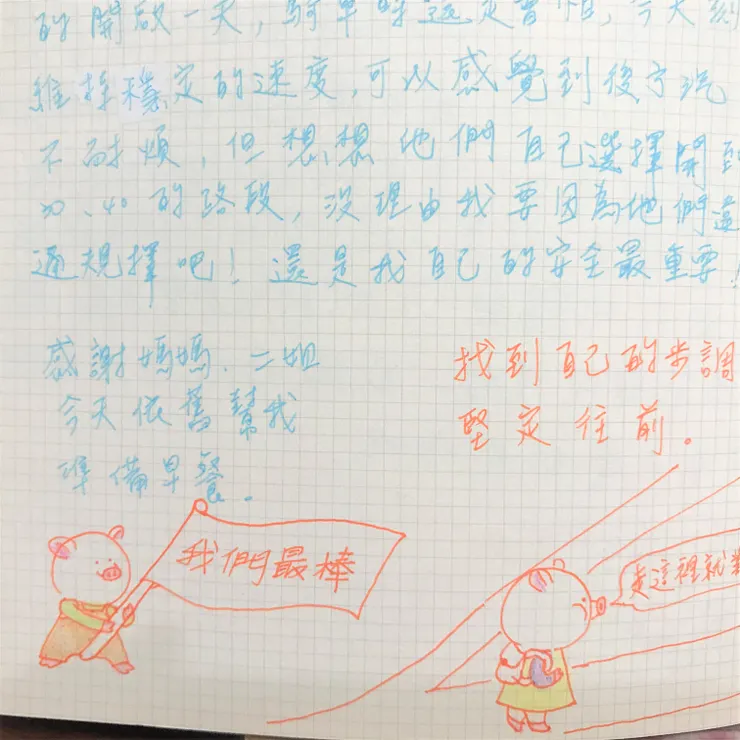 的開啟一天，騎車時速定會怕，今天刻
維持穩定的速度，可以感覺到後方汽
不耐煩，但想想他們自己選擇開到
30、40的路段，沒理由我要因為他們這
逼規擇吧！還是我自己的安全最重要！
感謝媽媽、二姐
今天依舊幫我
準備早餐。
找到自己的步調
堅定往前。
我們最棒
走這裡就